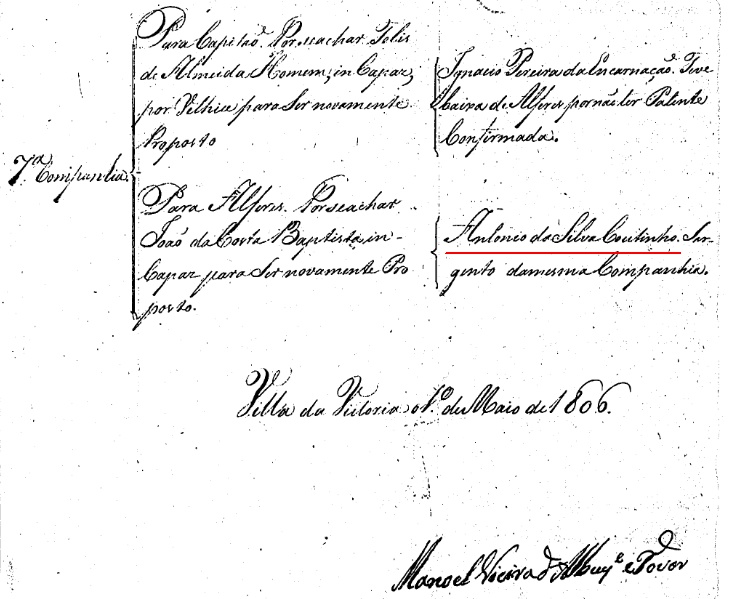 7ª Companhia
Para Capitaõ. Por se achar Felis
de Almeida Homem, in Capaz,
por Velhice para Ser novamente
Proposto
Ignacio Pereira da Encarnaçaõ. Teve
baixa de Alferes por naõ ter Patente
Confirmada.
Para Alferes. Por se achar
Joaõ da Costa Baptista in-
Capaz para Ser novamente Pro
posto.
Antonio da Silva Coutinho. Sar-
gento da mesma Companhia.
Villa da Victoria o 1.º de Maio de 1806.
Manoel Vieira d'Albuqe. e Tovar